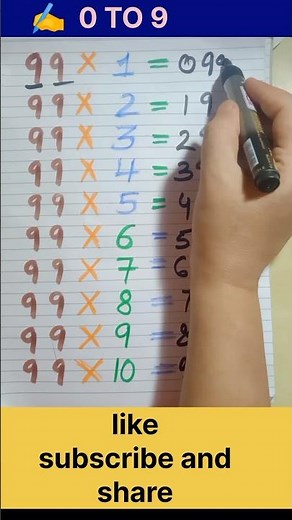 ✍️ 0 TO 9
99 × 1 = 099
99 × 2 = 19
99 × 3 = 2
99 × 4 = 3
99 × 5 = 4
99 × 6 = 5
99 × 7 = 6
99 × 8 = 7
99 × 9 = 8
99 × 10 =
like
subscribe and
share